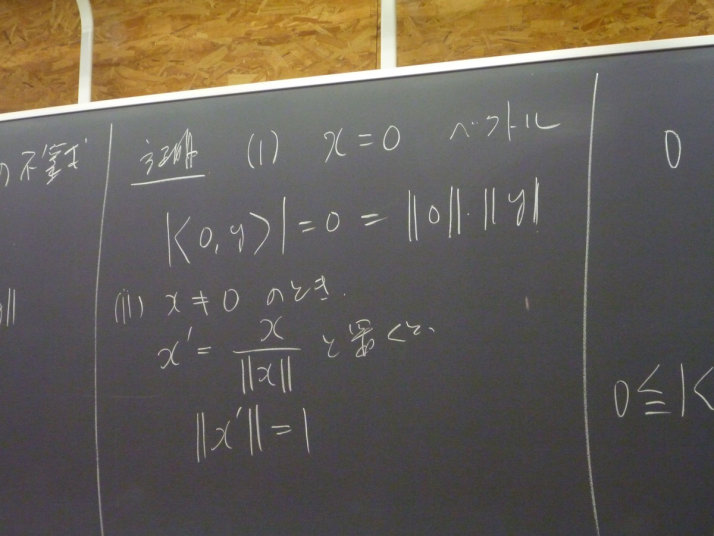 の不等式
||
証明 (i) x = 0 ベクトル
|<0, y>| = 0 = ||0||・||y||
(ii) x ≠ 0 のとき.
x' = x / ||x|| と置くと、
||x'|| = 1
0
0 ≦ |<